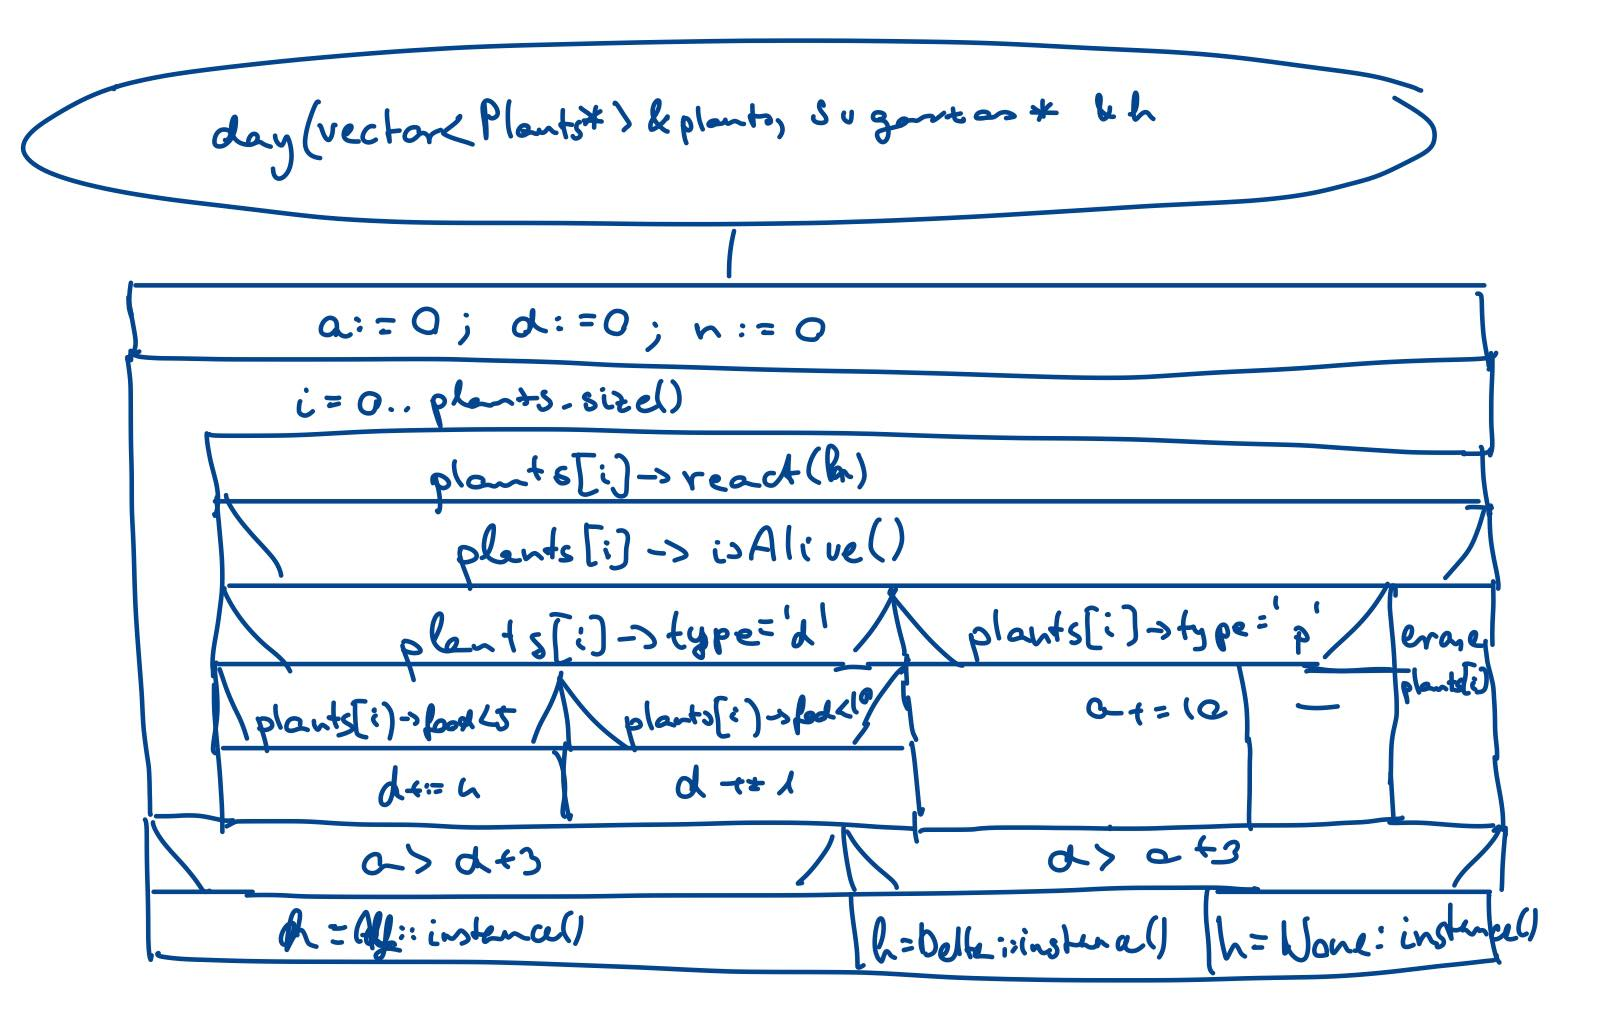 day(vector<Plants*>&plants, sugarzas* &h
a:=0; d:=0; n:=0
i=0..plants.size()
plants[i]->react(h)
plants[i]->isAlive()
plants[i]->type='d' plants[i]->type='p' erase
plants[i]
plants[i]->food<5 plants[i]->food<10 a+=10 —
d+=4 d+=1
a>d+3 d>a+3
h=::instance() h=Delta::instance() h=None:instance()